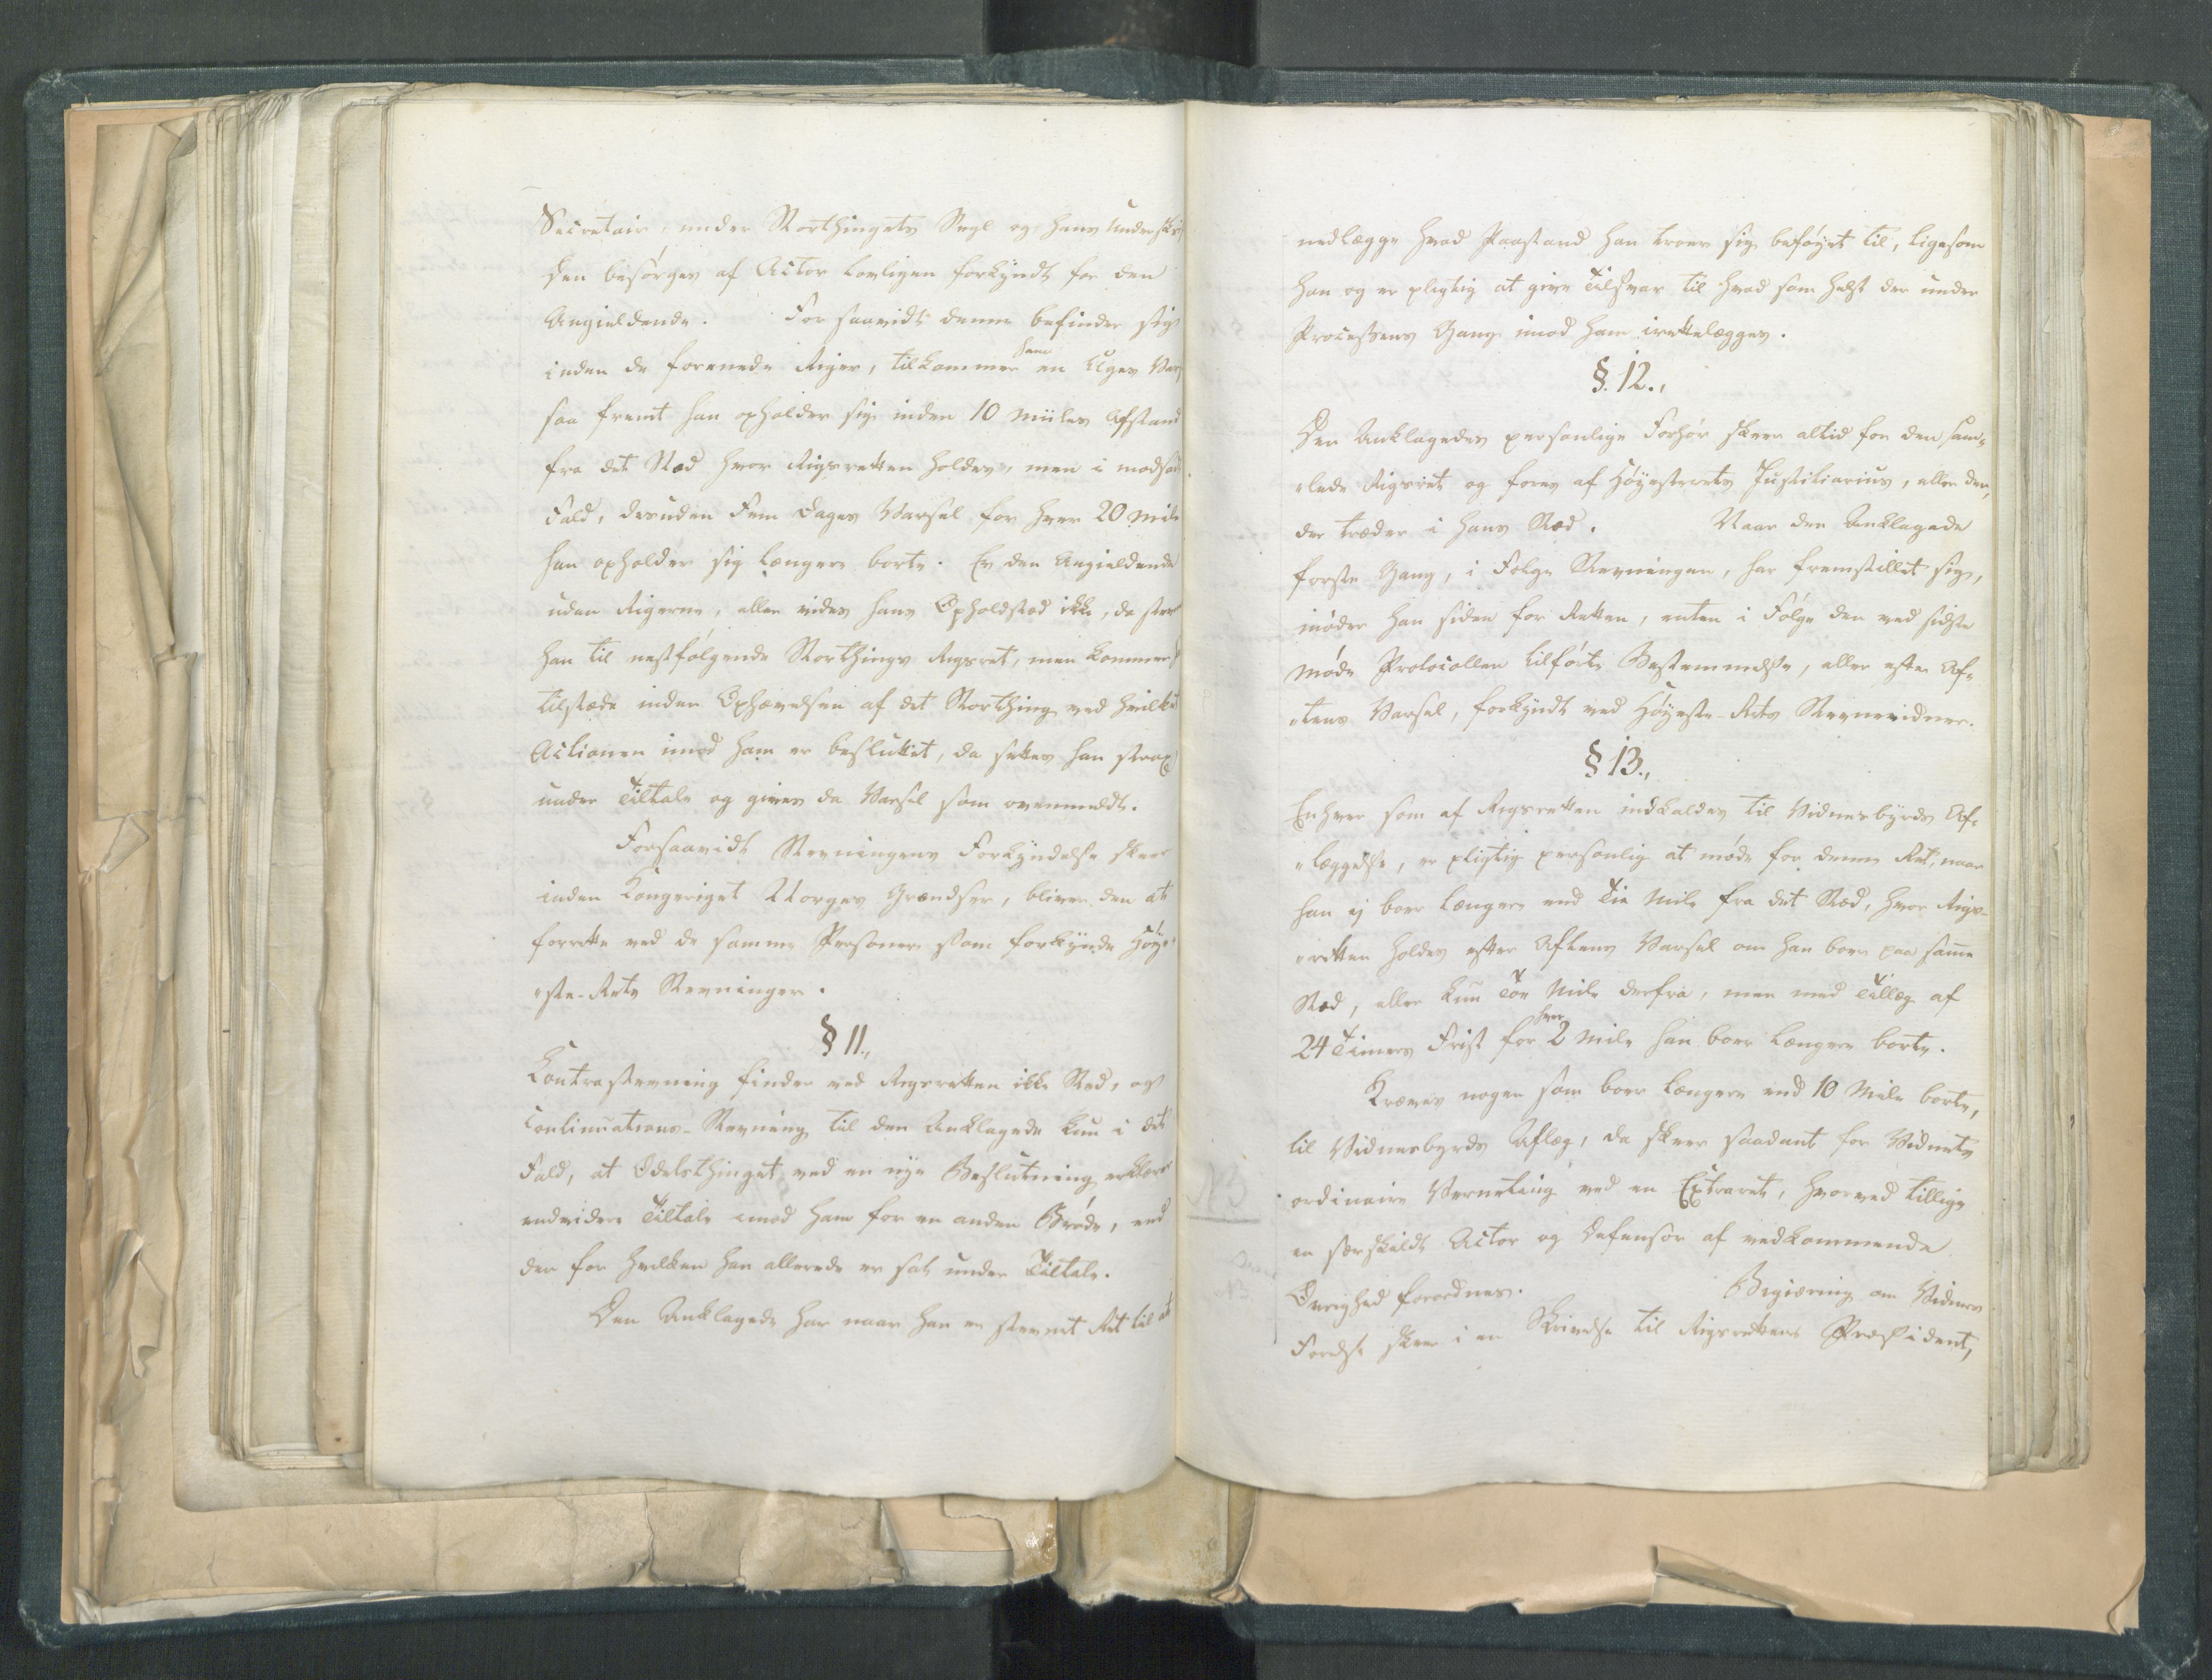 Secretair, under Storthingets Segl og hans Underskri
den besörges af Actor lovligen forkyndt for den
Angieldende. For saavidt denne befinder sig
inden de forenede Riger, tilkommer ham en Uges Var
saa fremt han opholder sig inden 10 Miiles Afstand
fra det Sted hvor Rigsretten holdes, men i modsat
Fald, desuden Fem Dages Varsel for hver 20 Mile
han opholder sig længere borte. Er den Angieldende
uden Rigerne, eller vides hans Opholdsted ikke, da
han til næstfølgende Storthings Rigsret, men kommer
tilstæde inden Ophævelsen af det Storthing ved hvilket
Actionen imod ham er besluttet, da sættes han strax
under Tiltale og gives da Varsel som ovenmeldt.
Forsaavidt Stevningens Forkyndelse skeer
inden Kongeriget Norges Grændser, bliver den at
forrette ved de samme Personer som forkynde Höy„
„ste-Rets Stevninger.
§ 11.,
Contrastevning finder ved Rigsretten ikke Sted, og
Continuations-Stevning til den Anklagede kun i det
Fald, at Odelsthinget ved en nye Beslutning erklærer
endvidere Tiltale imod ham for en anden Bröde, end
den for hvilken han allerede er sat under Tiltale.
Den Anklagede har naar han er stevnet Ret til at
nedlægge hvad Paastand han troer sig beföyet til, ligesom
han og er pligtig at give Tilsvar til hvad som helst der under
Processens Gang imod ham irettelægges.
§. 12.,
Den Anklagedes personlige Forhör skeer altid for den sam„
„lede Rigsret og føres af Höyesterets Justitiarius, eller den,
der træder i hans Sted. Naar den Anklagede
første Gang, i Følge Stevningen, har fremstillet sig,
møder han siden for Retten, enten i Fölge den ved sidste
Møde Protocollen tilförte Bestemmelse, eller efter Af„
„tens Varsel, forkyndt ved Höyeste-Rets Stevnevidner.
§ 13.,
Enhver som af Rigsretten indkaldes til Vidnesbyrds Af„
„læggelse, er pligtig personlig at møde for denne Ret, naar
han ej boer længere end Tie Mile fra det Sted, hvor Rigs-
„retten holdes efter Aftens Varsel om han boer paa samme
Sted, eller kun Toe Mile derfra, men med Tillæg af
24 Timers Frist for hver 2 Mile han boer længere borte.
Kræves nogen som boer længere end 10 Mile borte,
til Vidnesbyrds Aflæg, da skeer saadant for Vidnets
ordinaire Verneting ved en Extraret, hvorved tillige
en særskildt Actor og Defensor af vedkommende
Øvrighed forordnes. Begiæring om Vidners
Førelse skeer i en Skrivelse til Rigsrettens Præsident,
NB
NB